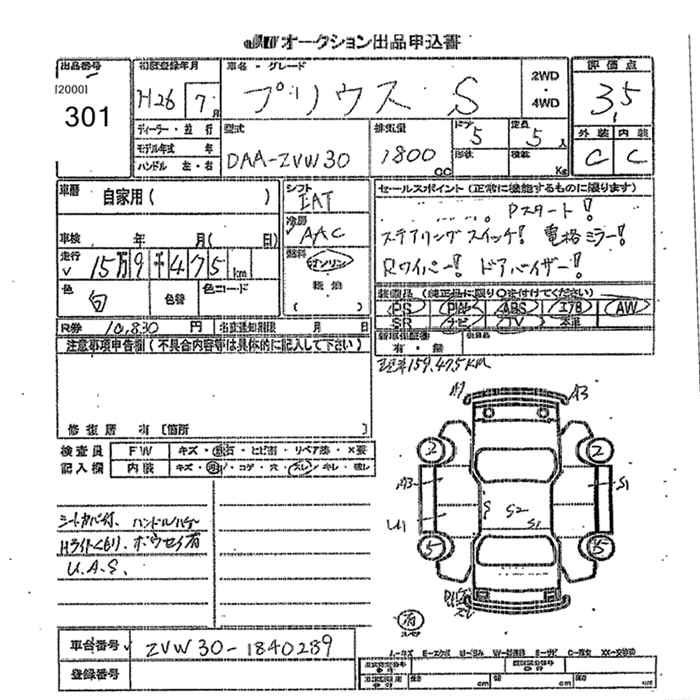 オークション出品申込書
出品番号
[2000]
301
初度登録年月
H26 7月
ディーラー・並行
モデル年式 年
ハンドル 左・右
車名・グレード
プリウス S
2WD
・
4WD
評価点
3.5
外装 内装
C C
型式
DAA-ZVW30
排気量
1800
CC
ドア
5
形状
定員
5人
積載
Kg
車歴 自家用( )
車検 年 月( 日)
走行 15万9千475km
色 白 色替 色コード
シフト
冷房
AAC
燃料
ガソリン
軽油
セールスポイント(正常に機能するものに限ります)
Pスタート!
ステアリングスイッチ! 電格ミラー!
Rワイパー! ドアバイザー!
装備品(純正品に限り○を付けてください)
PS PW ABS エアB AW
SR ナビ TV 本革
新車保証書
有・無
R券 10,830円 名変通知期限 月 日
注意事項申告欄(不具合内容等は具体的に記入して下さい)
修復歴 有[箇所 ]
159,475KM
検査員
記入欄
FW キズ・飛石・ヒビ割・リペア済・×要
内装
シートカバー付、ハンドルカバー
Hライトくもり、
U.A.S.
A3
2 2
A3 S1
U1
S S2
S1
5
有
車台番号 ZVW30-1840289
登録番号
cm cm cm